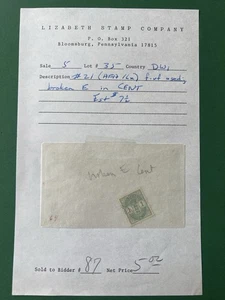 LIZABETH STAMP COMPANY
P. O. Box 321
Bloomsburg, Pennsylvania 17815
Sale 5 Lot # 35 Country DWI
Description #21 used,
broken E in CENT
Est $ 7½
broken E Cent
Sold to Bidder # 87 Net Price 5.00